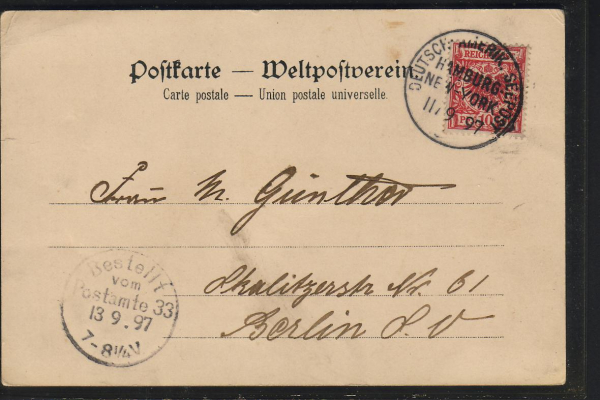 Postkarte — Weltpostverein
Carte postale — Union postale universelle.
DEUTSCH-AMERIK. SEEPOST
HAMBURG-
NEW-YORK
11/9 97
REICHSPOST
10
Frau M. Günther
Skalitzerstr Nr. 61
Berlin S. O
Bestellt
vom
Postamte 33
13 9. 97
7-8¼V